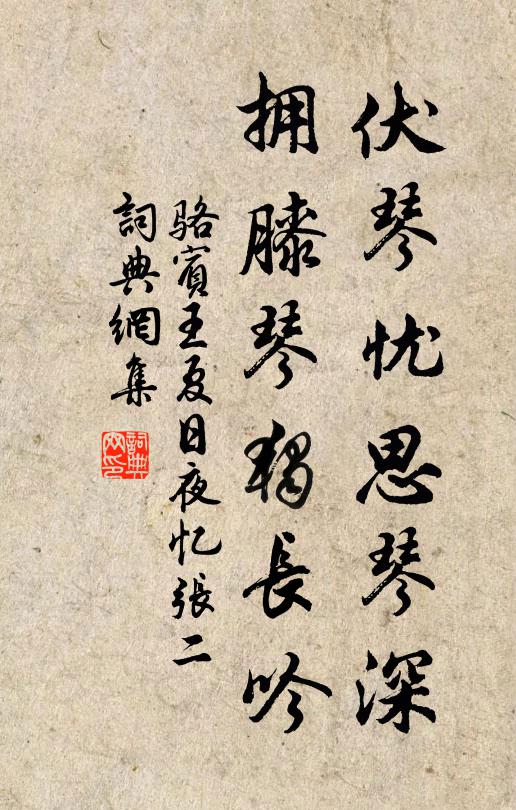 伏琴忧思琴深
拥膝琴獨長吟
骆賓王夏日夜忆張二
詞典網集
詞典网印